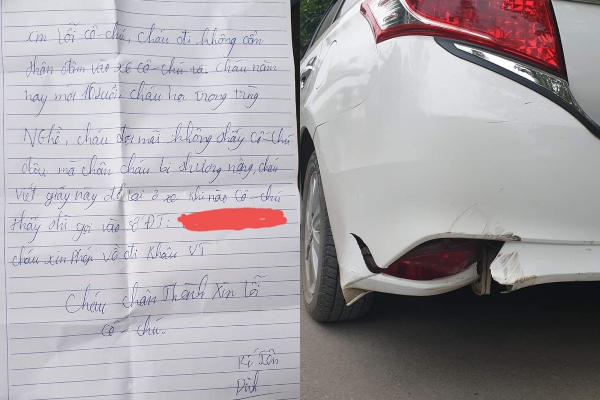 xin lỗi cô-chú, cháu đi không cẩn
thận đâm vào xe cô-chú và cháu năm
nay mới 15 tuổi cháu học trong trường
Nghề, cháu đợi mãi không thấy cô-chú
đâu mà chân cháu bị thương nặng, cháu
viết giấy này để lại ở xe khi nào cô-chú
thấy thì gọi vào số ĐT:
cháu xin phép về đi khâu VT
Cháu chân Thành Xin lỗi
cô-chú.
Kí Tên